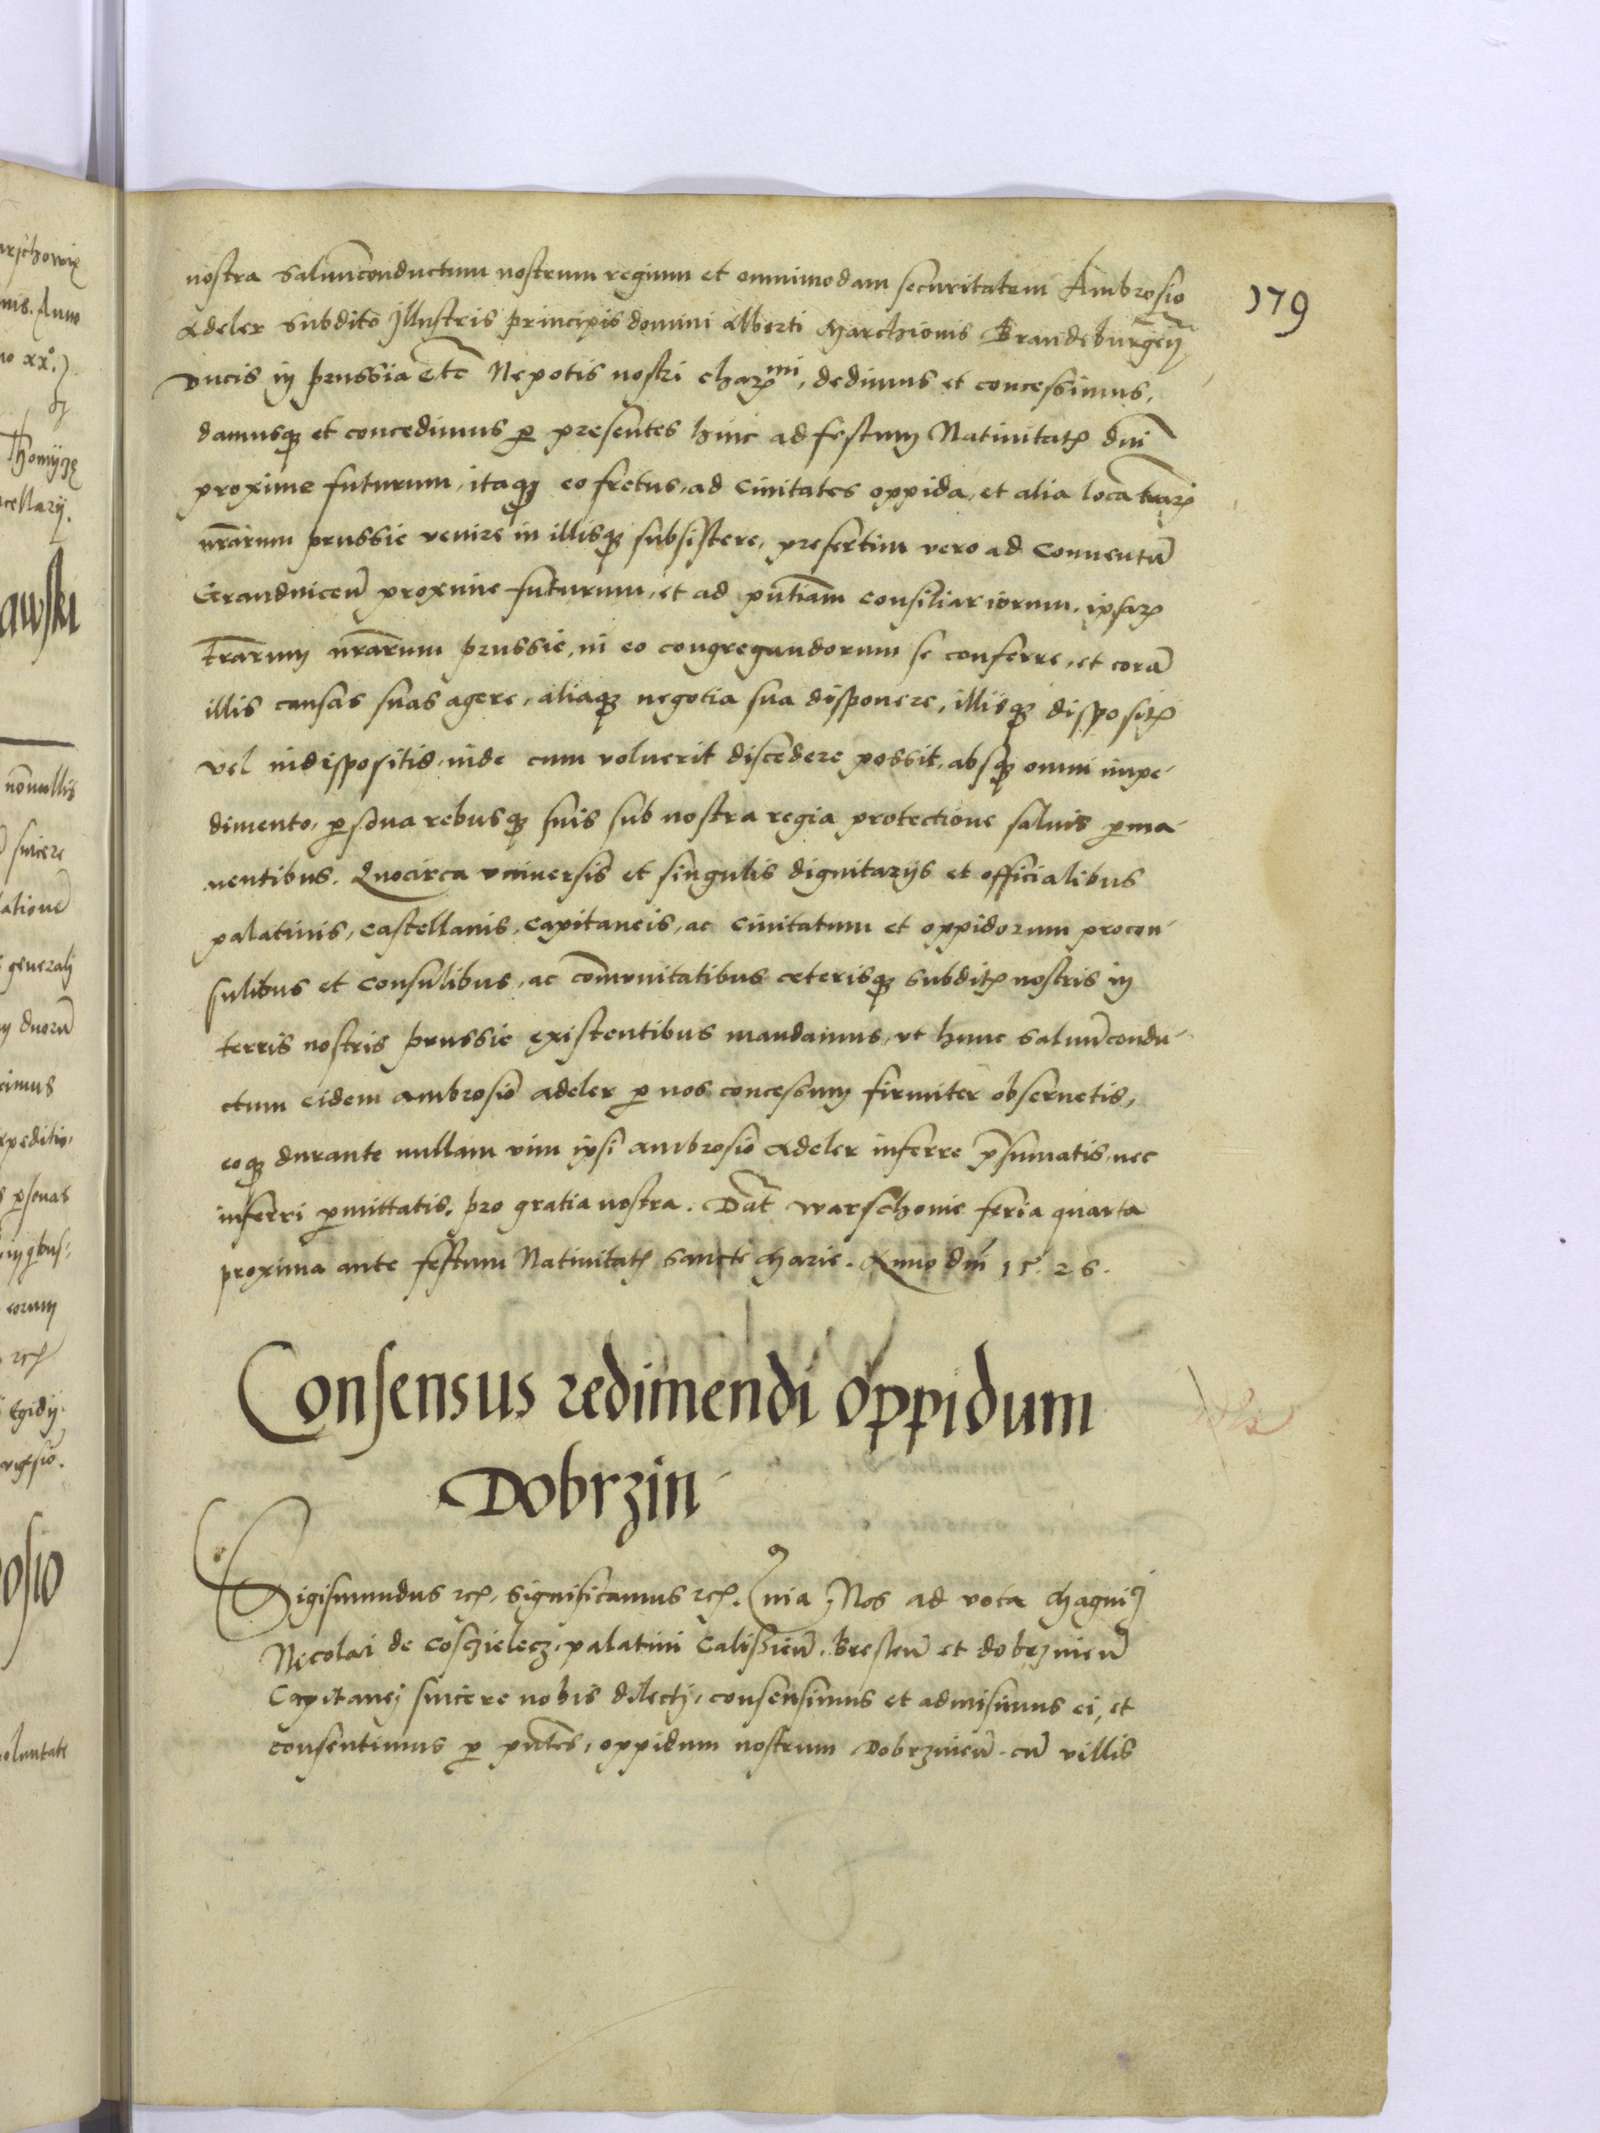 179
nostra saluumconductum nostrum regium et omnimodam securitatem Ambrosio
Adeler subdito Illustris principis domini Alberti Marchionis Brandeburgen̄
Ducis in prussia etc̄ Nepotis nostri charꝭmi, dedimus et concessimus,
damusqꝫ et concedimus ꝑ presentes hinc ad festum Natiuitatꝭ dnī
proxime futurum, itaqꝫ eo fretus, ad Ciuitates oppida, et alia loca tr̄arꝭ
nr̄arum prussie venire in illisqꝫ subsistere, presertim vero ad Conuentū
Graudnicen̄ proxime futurum, et ad pn̄tiam consiliariorum, ipsarꝭ
tr̄arum nr̄arum prussie, in eo congregandorum se conferre, et corā
illis causas suas agere, aliaqꝫ negotia sua disponere, illisqꝫ dispositꝭ
vel indispositis, inde cum voluerit discedere possit, absqꝫ omni impe-
dimento, ꝑsona rebusqꝫ suis sub nostra regia protectione saluis ꝑma-
nentibus. Quocirca vniuersis et singulis dignitarijs et officialibus
palatinis, Castellanis, Capitaneis, ac Ciuitatum et oppidorum procon-
sulibus et Consulibus, ac com̄unitatibus ceterisqꝫ subditꝭ nostris in
terris nostris prussie existentibus mandamus, vt hunc saluūcondu-
ctum eidem Ambrosio Adeler ꝑ nos concessum firmiter obseruetis,
eoqꝫ durante nullam vim ipsi Ambrosio Adeler inferre p̄sumatis, nec
inferri ꝑmittatis, pro gratia nostra. Dat̄ Warschouie feria quarta
proxima ante festum Natiuitatꝭ Sancte Marie. Anno dnī 1526.
Consensus redimendi oppidum
Dobrzin
Sigismundus ꝛcꝭ, significamus ꝛcꝭ. Quia Nos ad vota Magnici
Nicolai de Cosczielecz, palatini Calissien̄, Bresten̄ et dobrznien̄
Capitanej sincere nobis dilectj, consensimus et admisimus ei, et
consentimus ꝑ pn̄tes, oppidum nostrum Dobrznien̄ cū villis